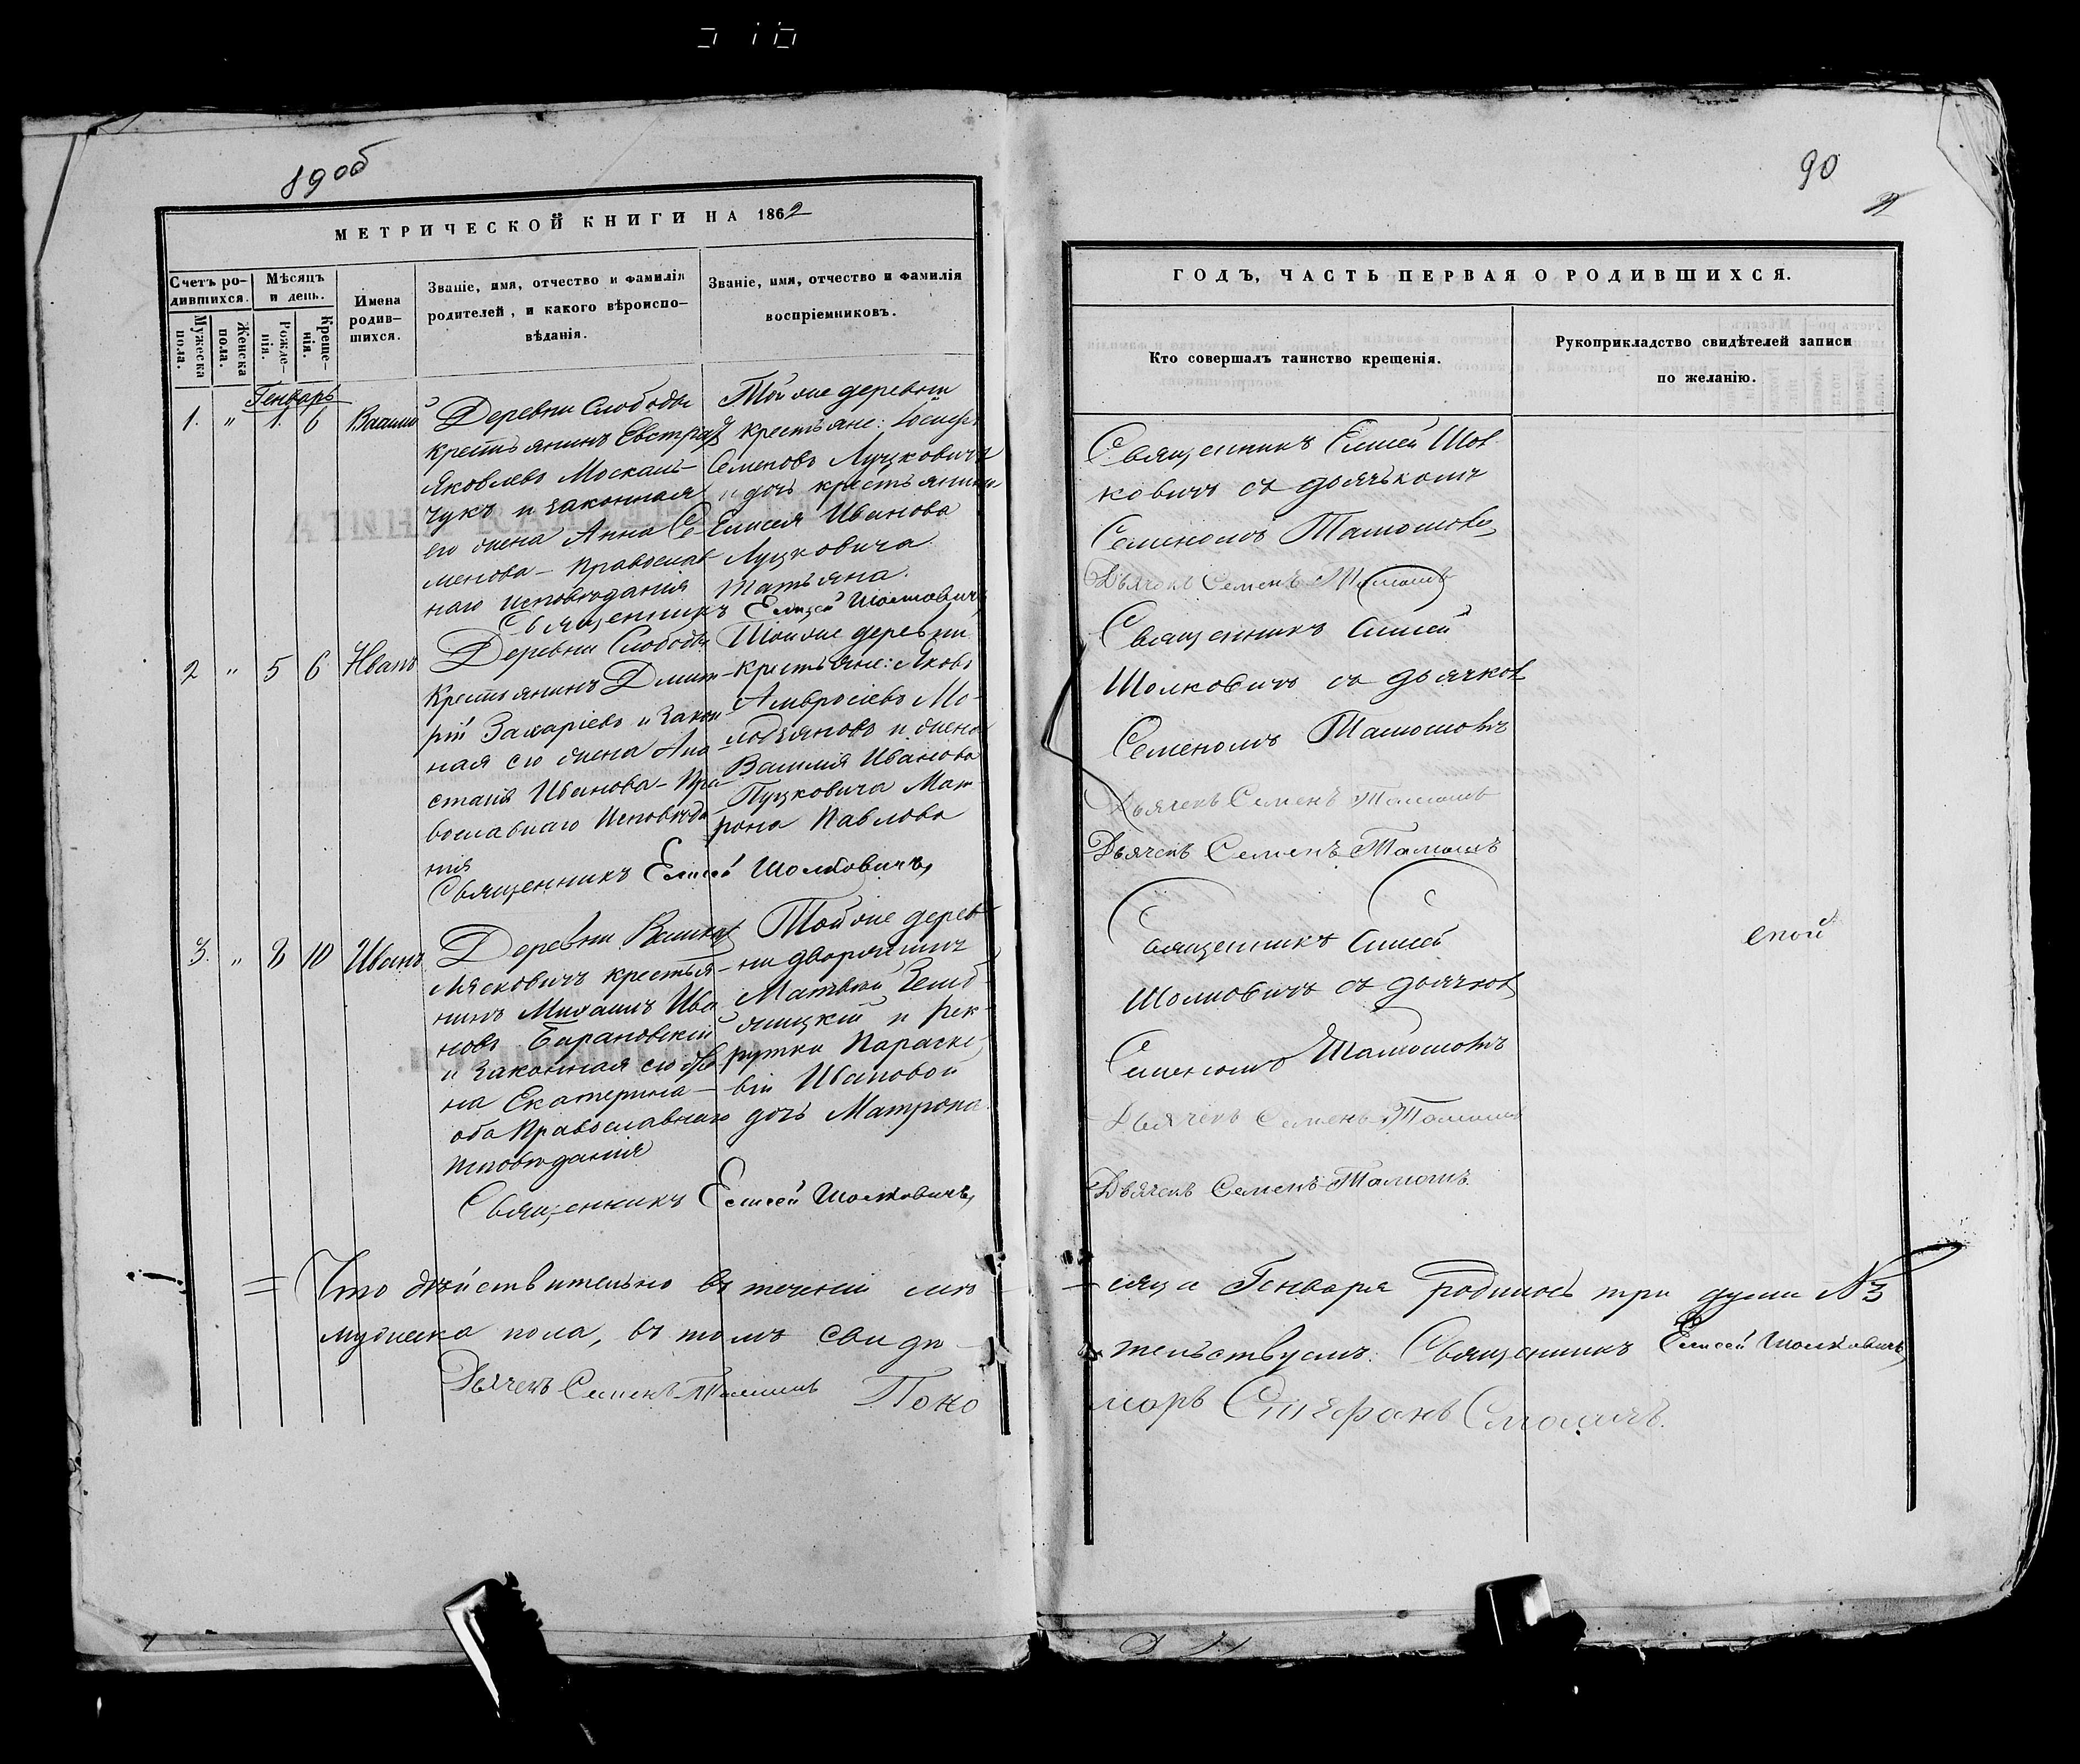 89 об
МЕТРИЧЕСКОЙ КНИГИ НА 1862
Счетъ ро-
дившихся.
Мужеска
пола.
Женска
пола.
Мѣсяцъ
и день.
Рожде-
нія.
Креще-
нія.
Имена
родив-
шихся.
Званіе, имя, отчество и фамилія
родителей, и какого вѣроиспо-
вѣданія.
Званіе, имя, отчество и фамилія
воспріемниковъ.
Генварь
1. " 1. 6 Василій
Деревни Слободы
крестьянинъ Евстраф
Яковлевъ Москаль-
чукъ и законная
его жена Анна Се-
менова - Православ
наго исповѣданія
Той же деревни
крестьяне: Іосифъ
Семеновъ Луцковичъ
и дочь крестьянина
Елисея Иванова
Луцковича
Татьяна.
Священникъ Елисей Шолковичъ
2 " 5 6 Иванъ
Деревни Слободы
Крестьянинъ Дмит-
рій Захаріевъ и закон
ная его жена Ана
стасія Иванова - Пра-
вославнаго Исповѣда
нія
Той же деревни
крестьяне: Яковъ
Амвросіевъ Мо-
лодъяновъ и жена
Василія Иванова
Луцковича Мат-
рона Павлова
Священникъ Елисей Шолковичъ,
3. " 8 10 Иванъ
Деревни Великих
Лясковичъ крестья-
нинъ Михаилъ Ива
новъ Барановскій
и законная его же
на Екатерина -
оба Православнаго
исповѣданія
Той же дерев-
ни дворянинъ
Матвѣй
и рек-
рутки Параске-
віи Ивановой
дочь Матрона
Священникъ Елисей Шолковичъ,
= Что дѣйствительно въ теченіи мѣ-
мужеска пола, въ томъ свидѣ-
Дьячекъ Семенъ Томашъ Поно
90
ГОДЪ, ЧАСТЬ ПЕРВАЯ О РОДИВШИХСЯ.
Кто совершалъ таинство крещенія.
Рукоприкладство свидѣтелей записи
по желанію.
Священникъ Елисей Шол
ковичъ съ дьячкомъ
Семеномъ
Дьячекъ Семенъ Томашъ
Священникъ Елисей
Шолковичъ съ дьячком
Семеномъ
Дьячекъ Семенъ Томашъ
Дьячекъ Семенъ Томашъ
Священникъ Елисей
Шолковичъ съ дьячком
Семеномъ
Дьячекъ Семенъ Томашъ
Дьячекъ Семенъ Томашъ
сяца Генваря родилось три души №3
тельствуемъ: Священникъ Елисей Шолковичъ
марь Стефанъ